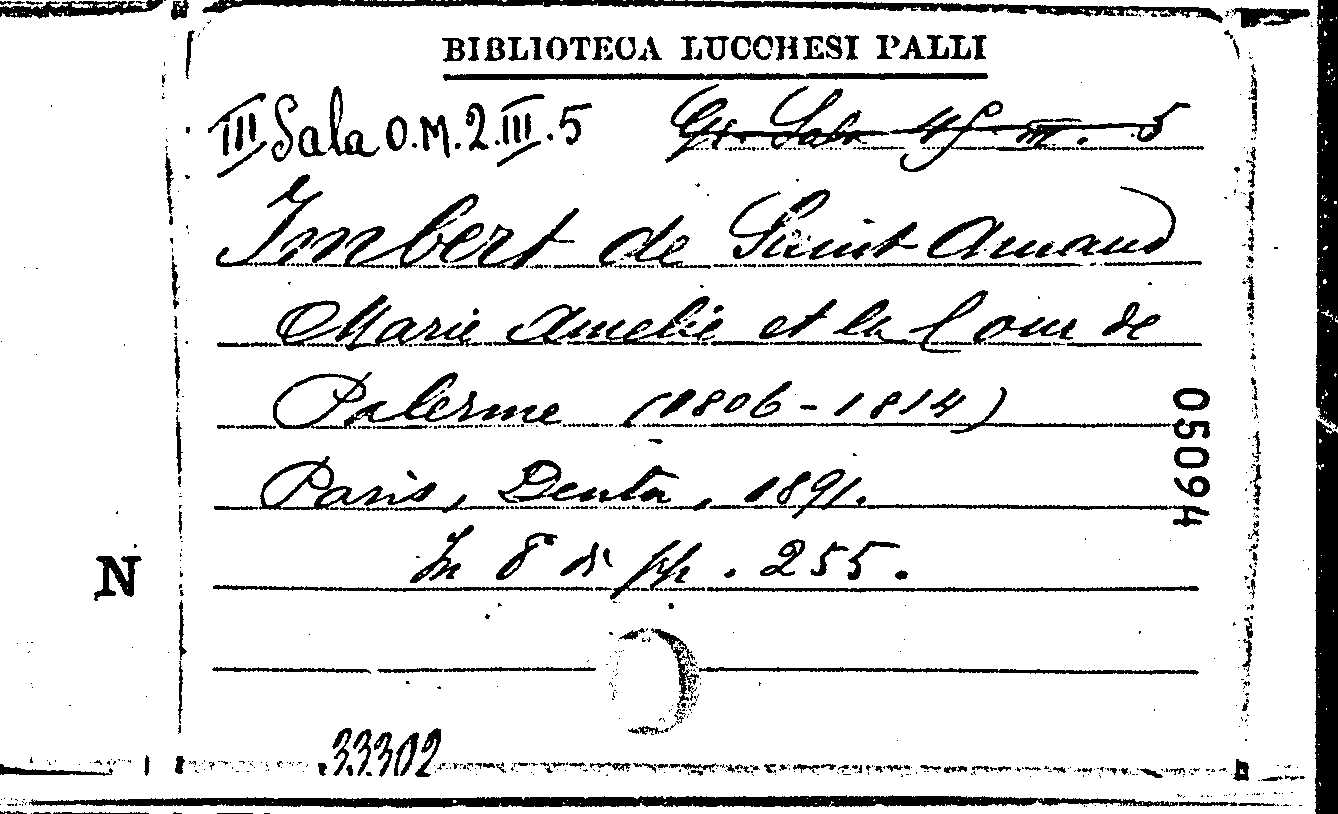 BIBLIOTECA LUCCHESI PALLI
III Sala O.M.2.III.5 Gr. Sala 45 III. 5
Imbert de Saint Amand
Marie Amelie et la Cour de
Palerme (1806-1814)
Paris, Dentu, 1891.
In 8° di pp. 255.
05094
N
33302